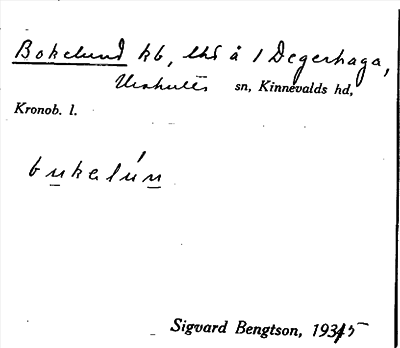 Bokelund kb, lht å 1 Degerhaga,
Urshults sn, Kinnevalds hd,
Kronob. l.
bukalún
Sigvard Bengtson, 1935